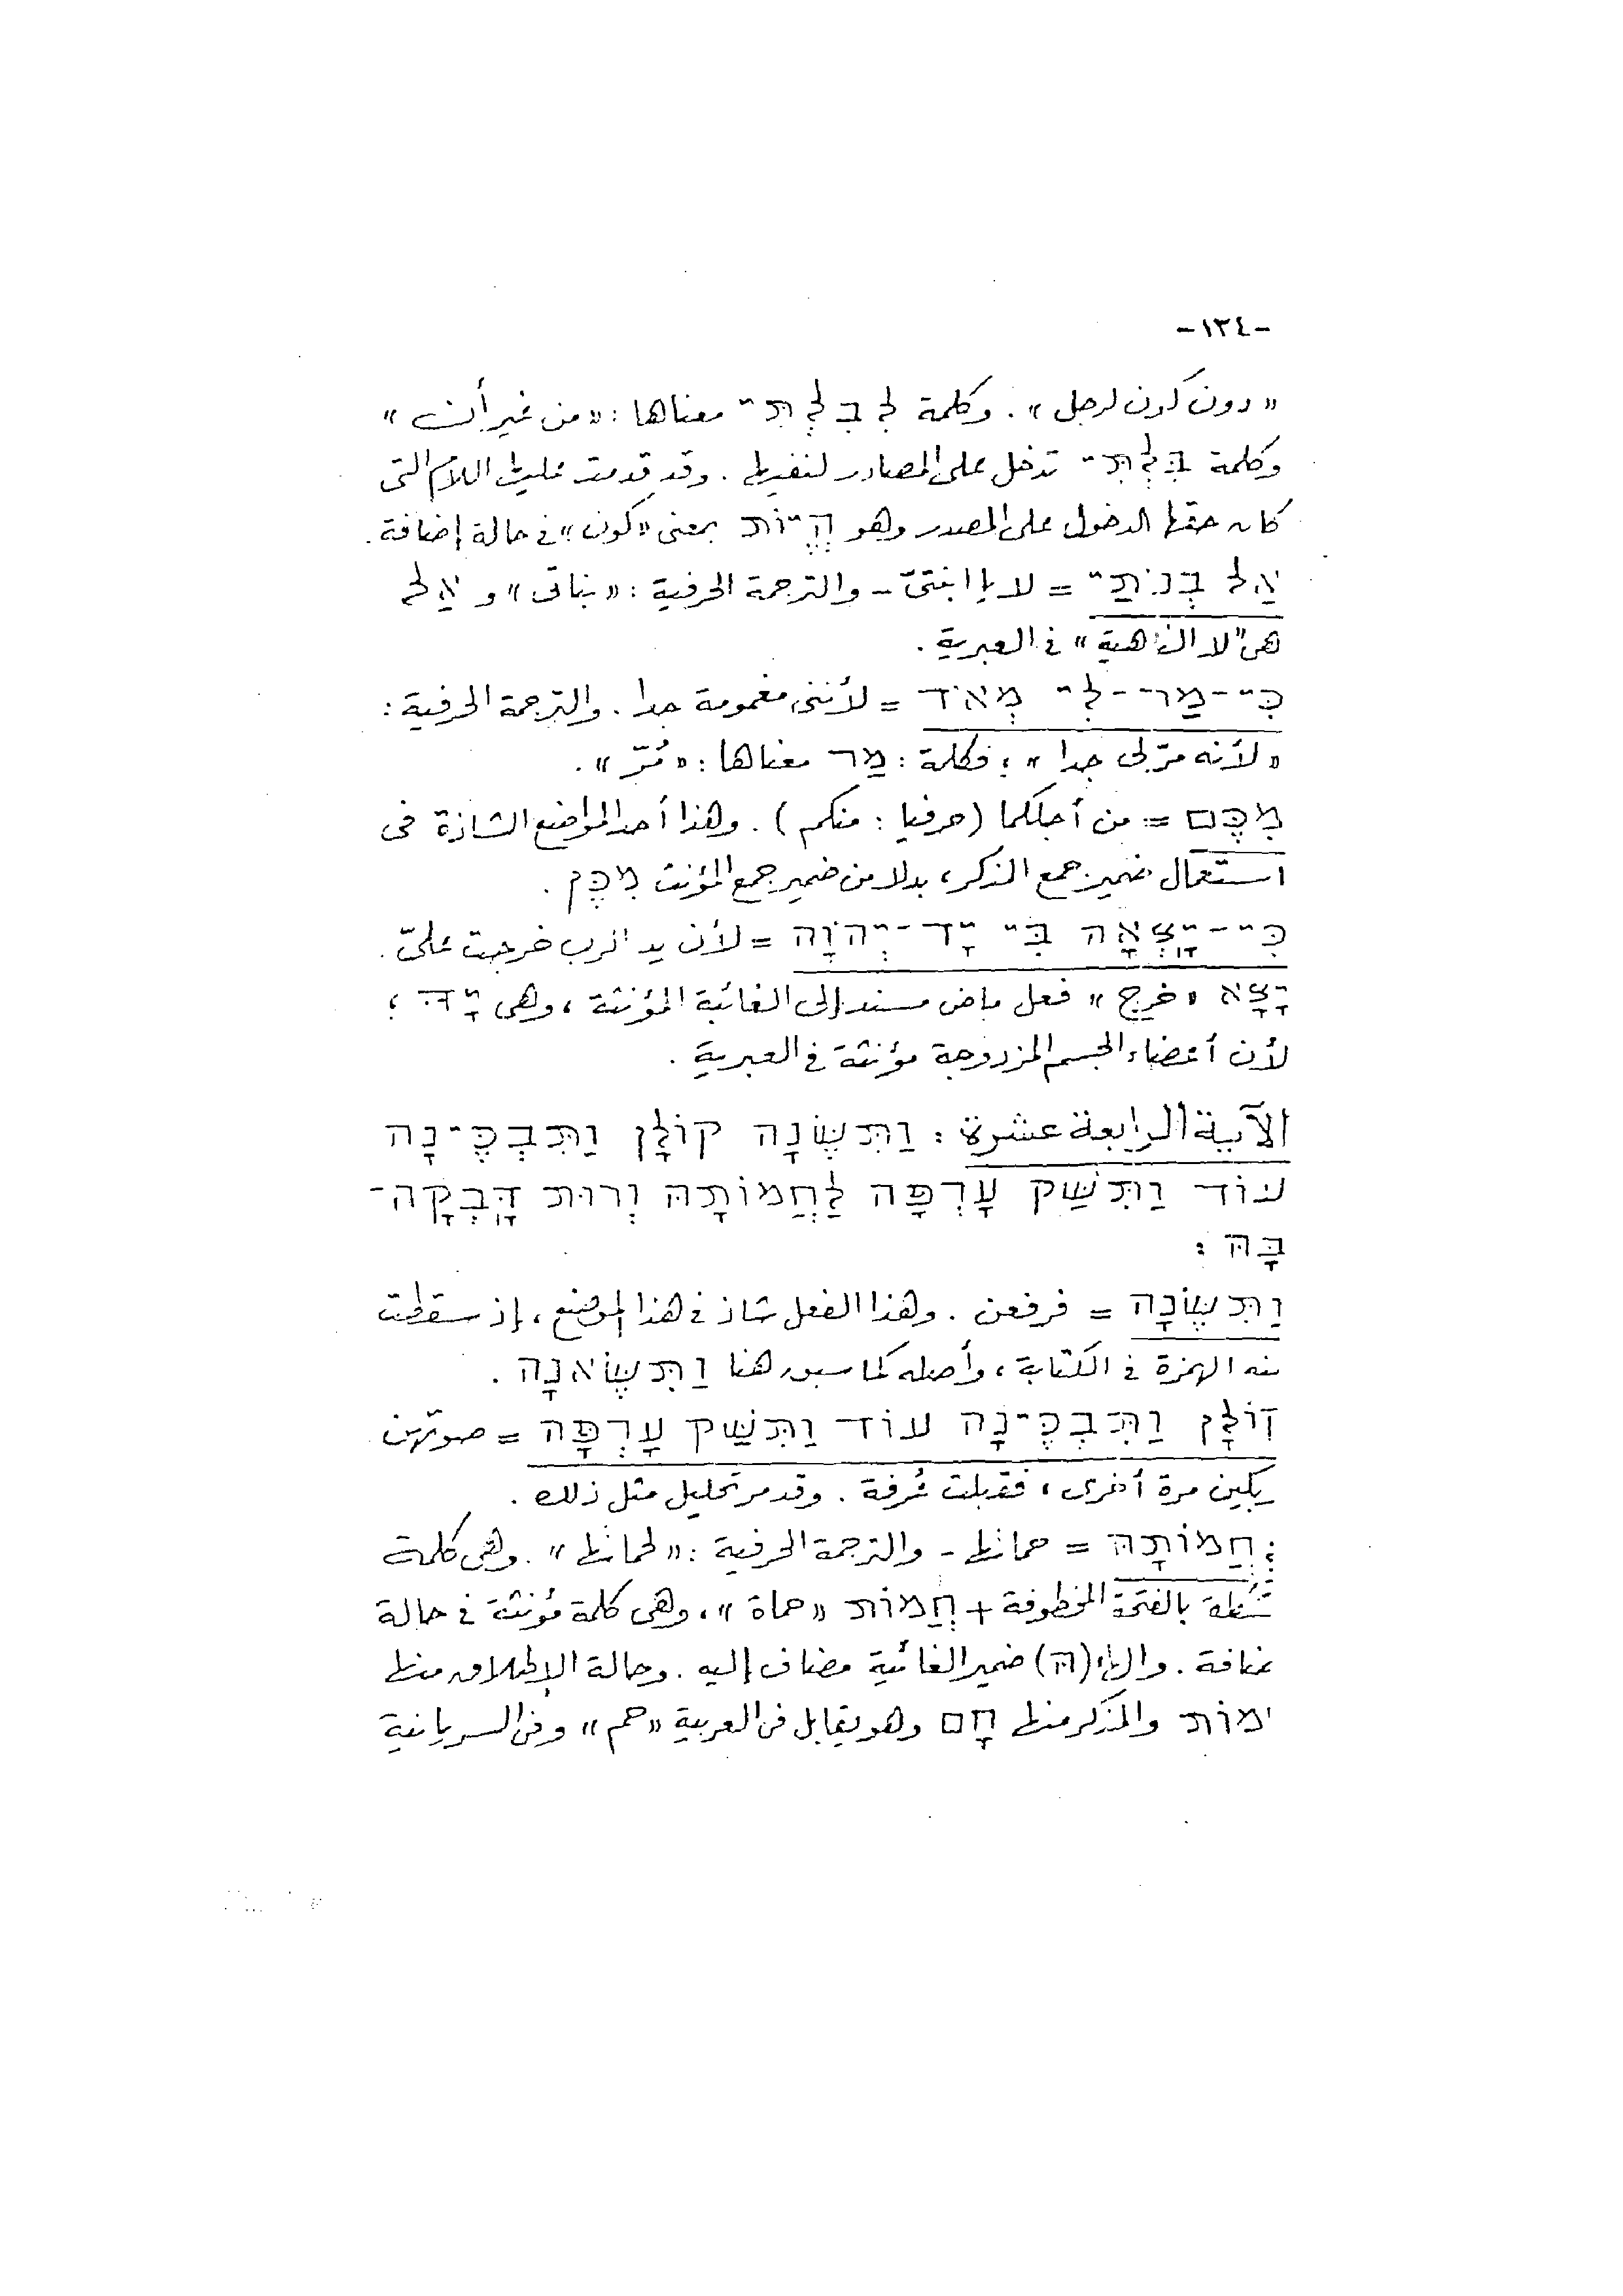 -١٣٤-
«دون كون لرجل» . وكلمة לְבִלְתִּי معناها : «من غير أن»
وكلمة בִּלְתִּי تدخل على المصادر لنفيها . وقد قدمت عليها اللام التى
كان حقها الدخول على المصدر وهو הֱיוֹת بمعنى «كون» فى حالة إضافة.
אַל בְּנֹתַי = لا يا ابنتىّ - والترجمة الحرفية : «بناتى» و אַל
هى "لا الناهية" فى العبرية .
כִּי-מַר-לִי מְאֹד = لأننى مغمومة جدا . والترجمة الحرفية :
«لأنه مرّ لى جدا» ؛ فكلمة : מַר معناها : «مُرّ» .
מִכֶּם = من أجلكما (حرفيا : منكم) . وهذا أحد المواضع الشاذة فى
استعمال ضمير جمع المذكر، بدلا من ضمير جمع المؤنث מִכֶּן .
כִּי-יָצְאָה בִי יַד-יְהוָֹה = لأن يد الرب خرجت علىّ .
יָצָא «خرج» فعل ماض مسند إلى الغائبة المؤنثة ، وهى יָד ؛
لأن أعضاء الجسم المزدوجة مؤنثة فى العبرية .
الآية الرابعة عشرة : וַתִּשֶּׂנָה קוֹלָן וַתִּבְכֶּינָה
עוֹד וַתִּשַּׁק עָרְפָּה לַחֲמוֹתָהּ וְרוּת דָּבְקָה-
בָּהּ :
וַתִּשֶּׂנָה = فرفعن . وهذا الفعل شاذ فى هذا الموضع ، إذ سقطت
منه الهمزة فى الكتابة ، وأصله كما سبور هنا וַתִּשֶּׂאנָה .
קוֹלָן וַתִּבְכֶּינָה עוֹד וַתִּשַּׁק עָרְפָּה = صوتهن
يبكين مرة أخرى ، فقبلت عُرفة . وقد مر تحليل مثل ذلك .
חֲמוֹתָהּ = حماتها - والترجمة الحرفية : «لحماتها» . وهى كلمة
مُشكلة بالفتحة المخطوفة + חֲמוֹת «حماة» ، وهى كلمة مؤنثة فى حالة
إضافة . والهاء (הּ) ضمير الغائبة مضاف إليه . وحالة الإطلاق منها
מוֹת والمذكر منها חָם وهو يقابل فى العربية «حم» وفى السريانية